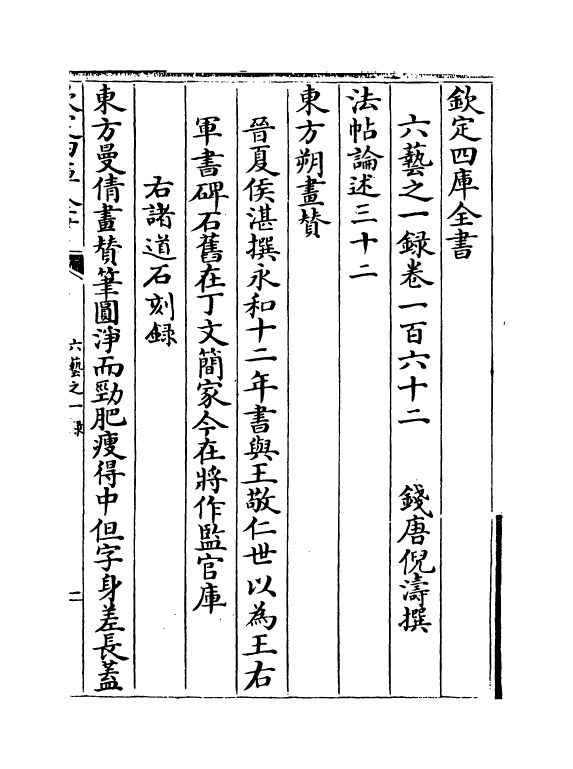 欽定四庫全書
六藝之一録卷一百六十二 錢唐倪濤撰
法帖論述三十二
東方朔畫賛
晉夏侯湛撰永和十二年書與王敬仁世以為王右
軍書碑石舊在丁文簡家今在將作監官庫
右諸道石刻録
東方曼倩畫賛筆圓淨而勁肥瘦得中但字身差長蓋
六藝之一録
二